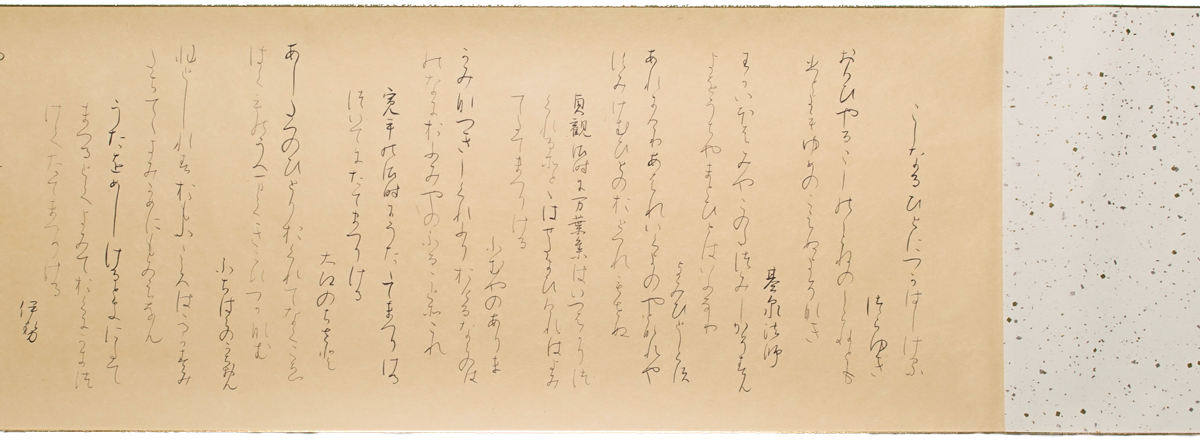 こしなるひとにつかはしける
つらゆき
おもひやるこしのしらねのしらねとも
ひとよもゆめのこえぬよそなき
基泉法師
わかいほはみやこのたつみしかそすむ
よをうちやまとひとはいふなり
よみひとしらす
あれにけりあはれいくよのやとなれや
すみけむひとのおとつれもせぬ
貞観御時に万葉集はいつはかりつ
くれるそととはせたまひけれはよみ
てたてまつりける
ふむやのあり
かみなつきしくれふりおけるならのは
のなにおふみやのふることそこれ
寛平の御時にうたたてまつりける
ついてにたてまつりける
大江のちさと
あしたつのひとりおくれてなくこゑ
はくものうへまてきこえつかなむ
ふちはらのかちおん
ひとしれすおもふこころははるかすみ
たちいててきみかめにもみえなん
うためしけるときにたて
まつるとてよみておくにかきつ
けてたてまつりける
伊勢